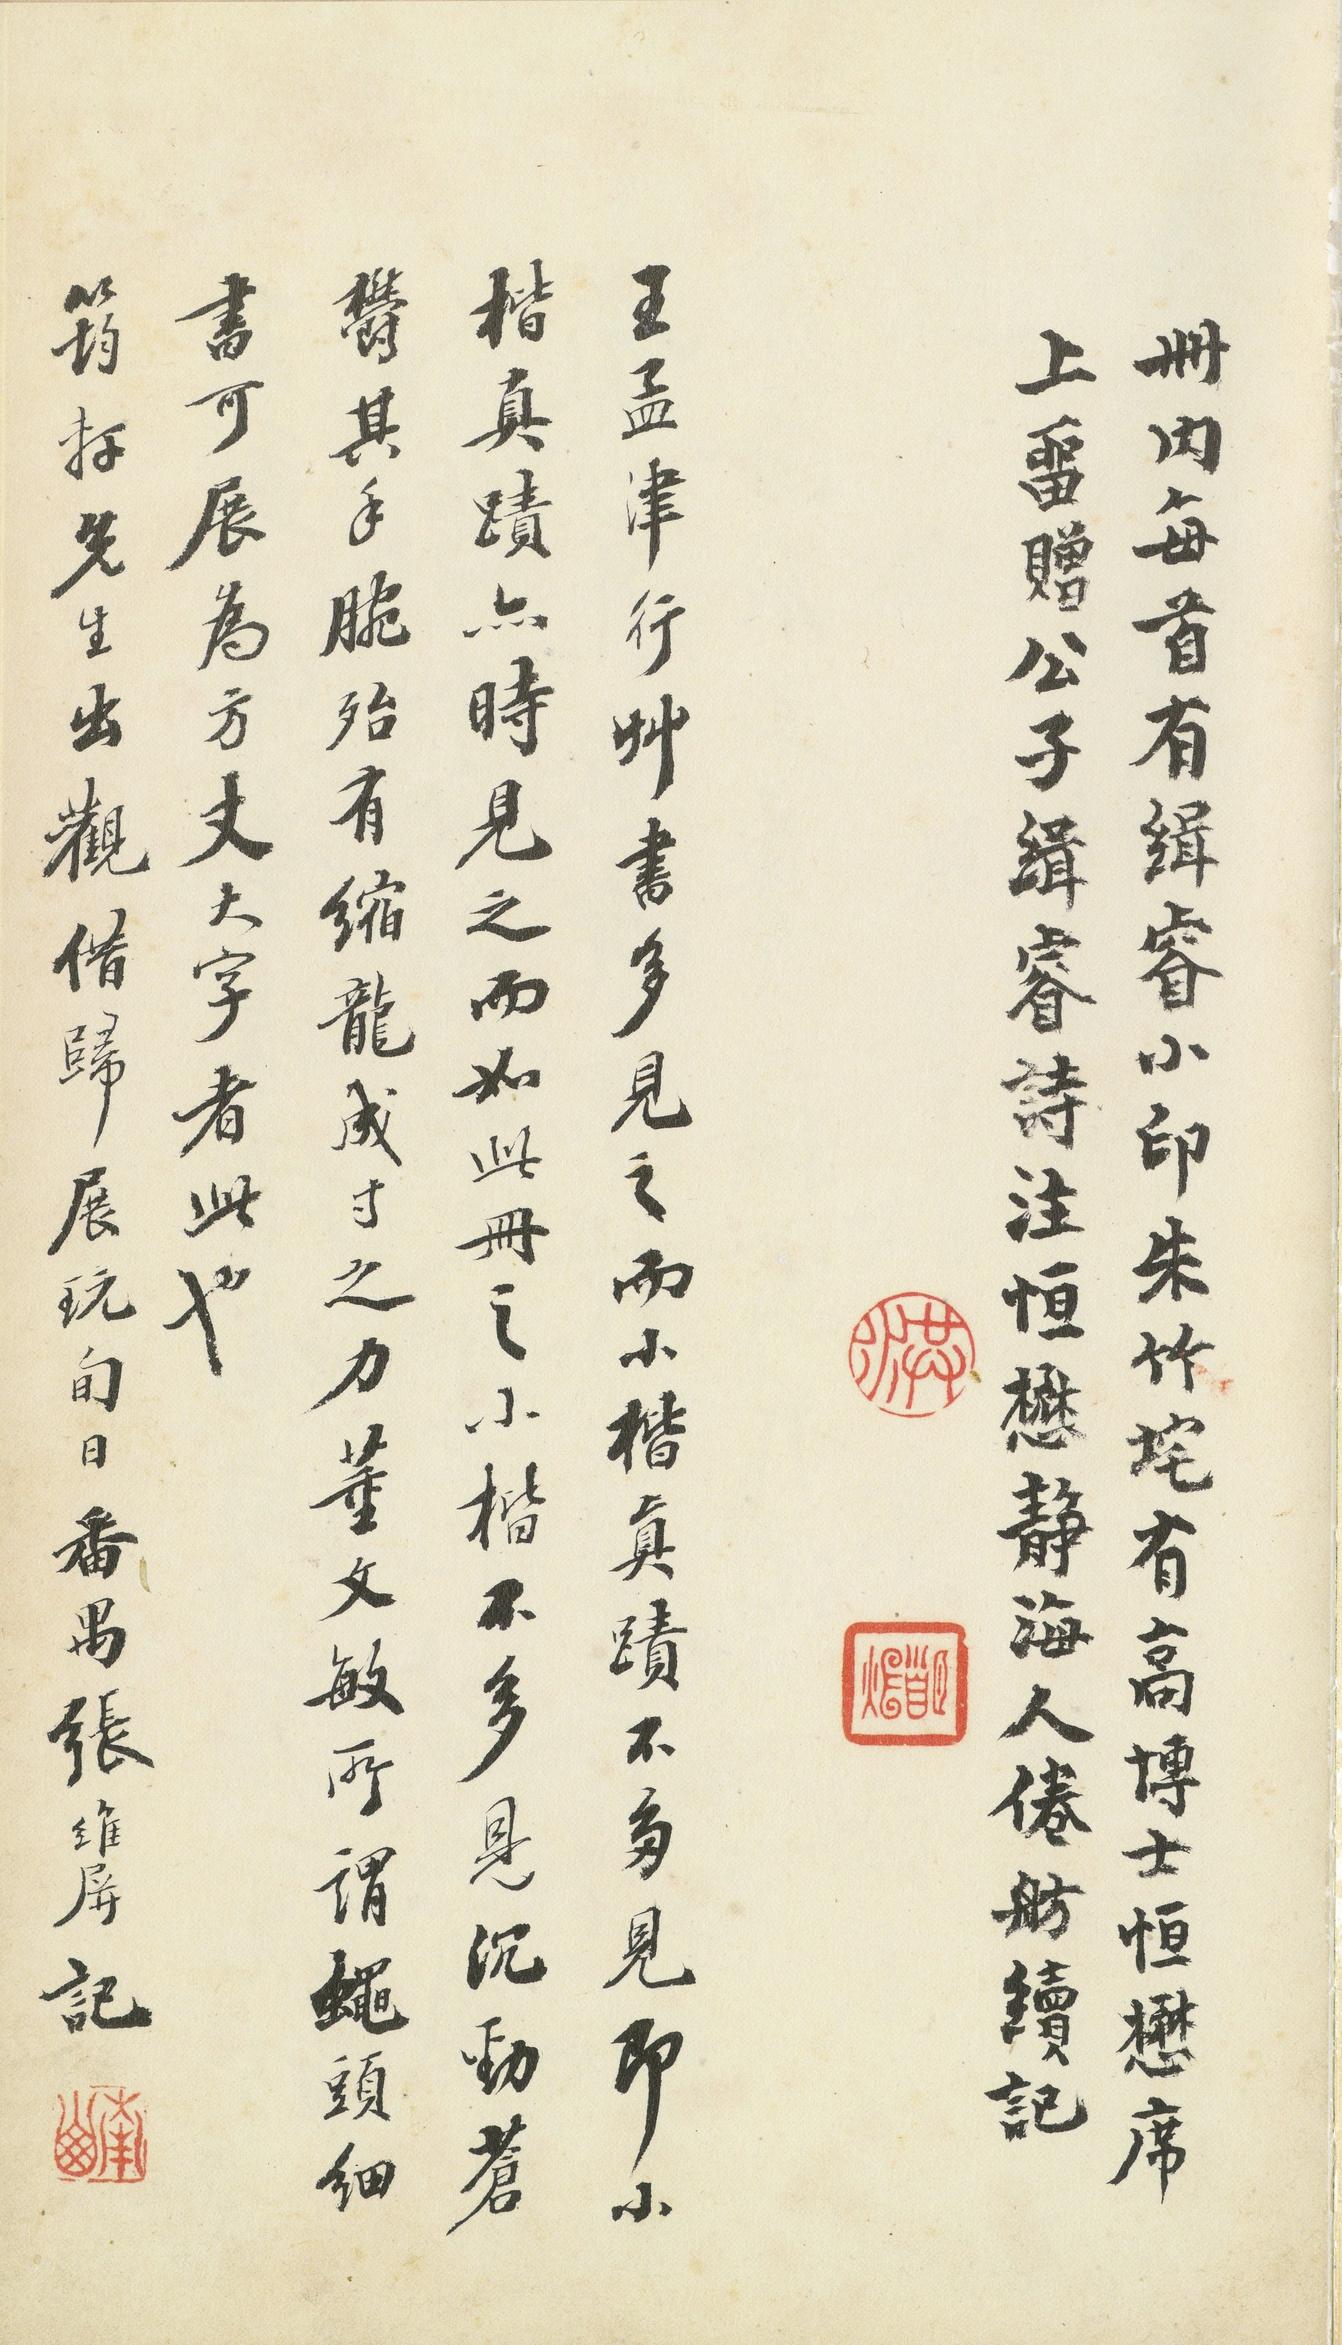 冊内每首有緝睿小印朱竹垞有高博士恒懋席
上留贈公子緝睿詩注恒懋靜海人倦舫續記
王孟津行艸書多見之而小楷真蹟不多見即小
楷真蹟亦時見之而如此冊之小楷不多見沉勁蒼
欝其手腕殆有縮龍成寸之力董文敏所謂蠅頭細
書可展為方丈大字者此也
筠打先生出觀借歸展玩旬日番禺張維屏記
洪
南山